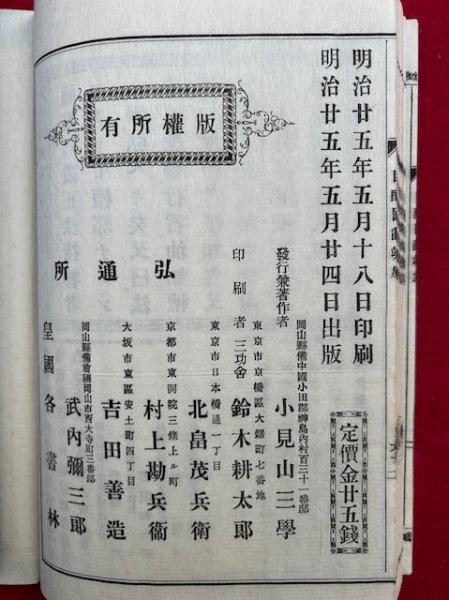 明治廿五年五月十八日印刷
明治廿五年五月廿四日出版
定價金廿五錢
版權所有
岡山縣備中國小田郡神島內村百三十一番邸
發行兼著作者 小見山三學
東京市京橋區大鋸町七番地
印刷者 三功舍 鈴木耕太郎
弘通所
東京市日本橋通一丁目
北畠茂兵衛
京都市東洞院三條上ル町
村上勘兵衞
大坂市東區安土町四丁目
吉田善造
岡山縣備前國岡山市西大寺町三番邸
武內彌三郎
皇國各書林